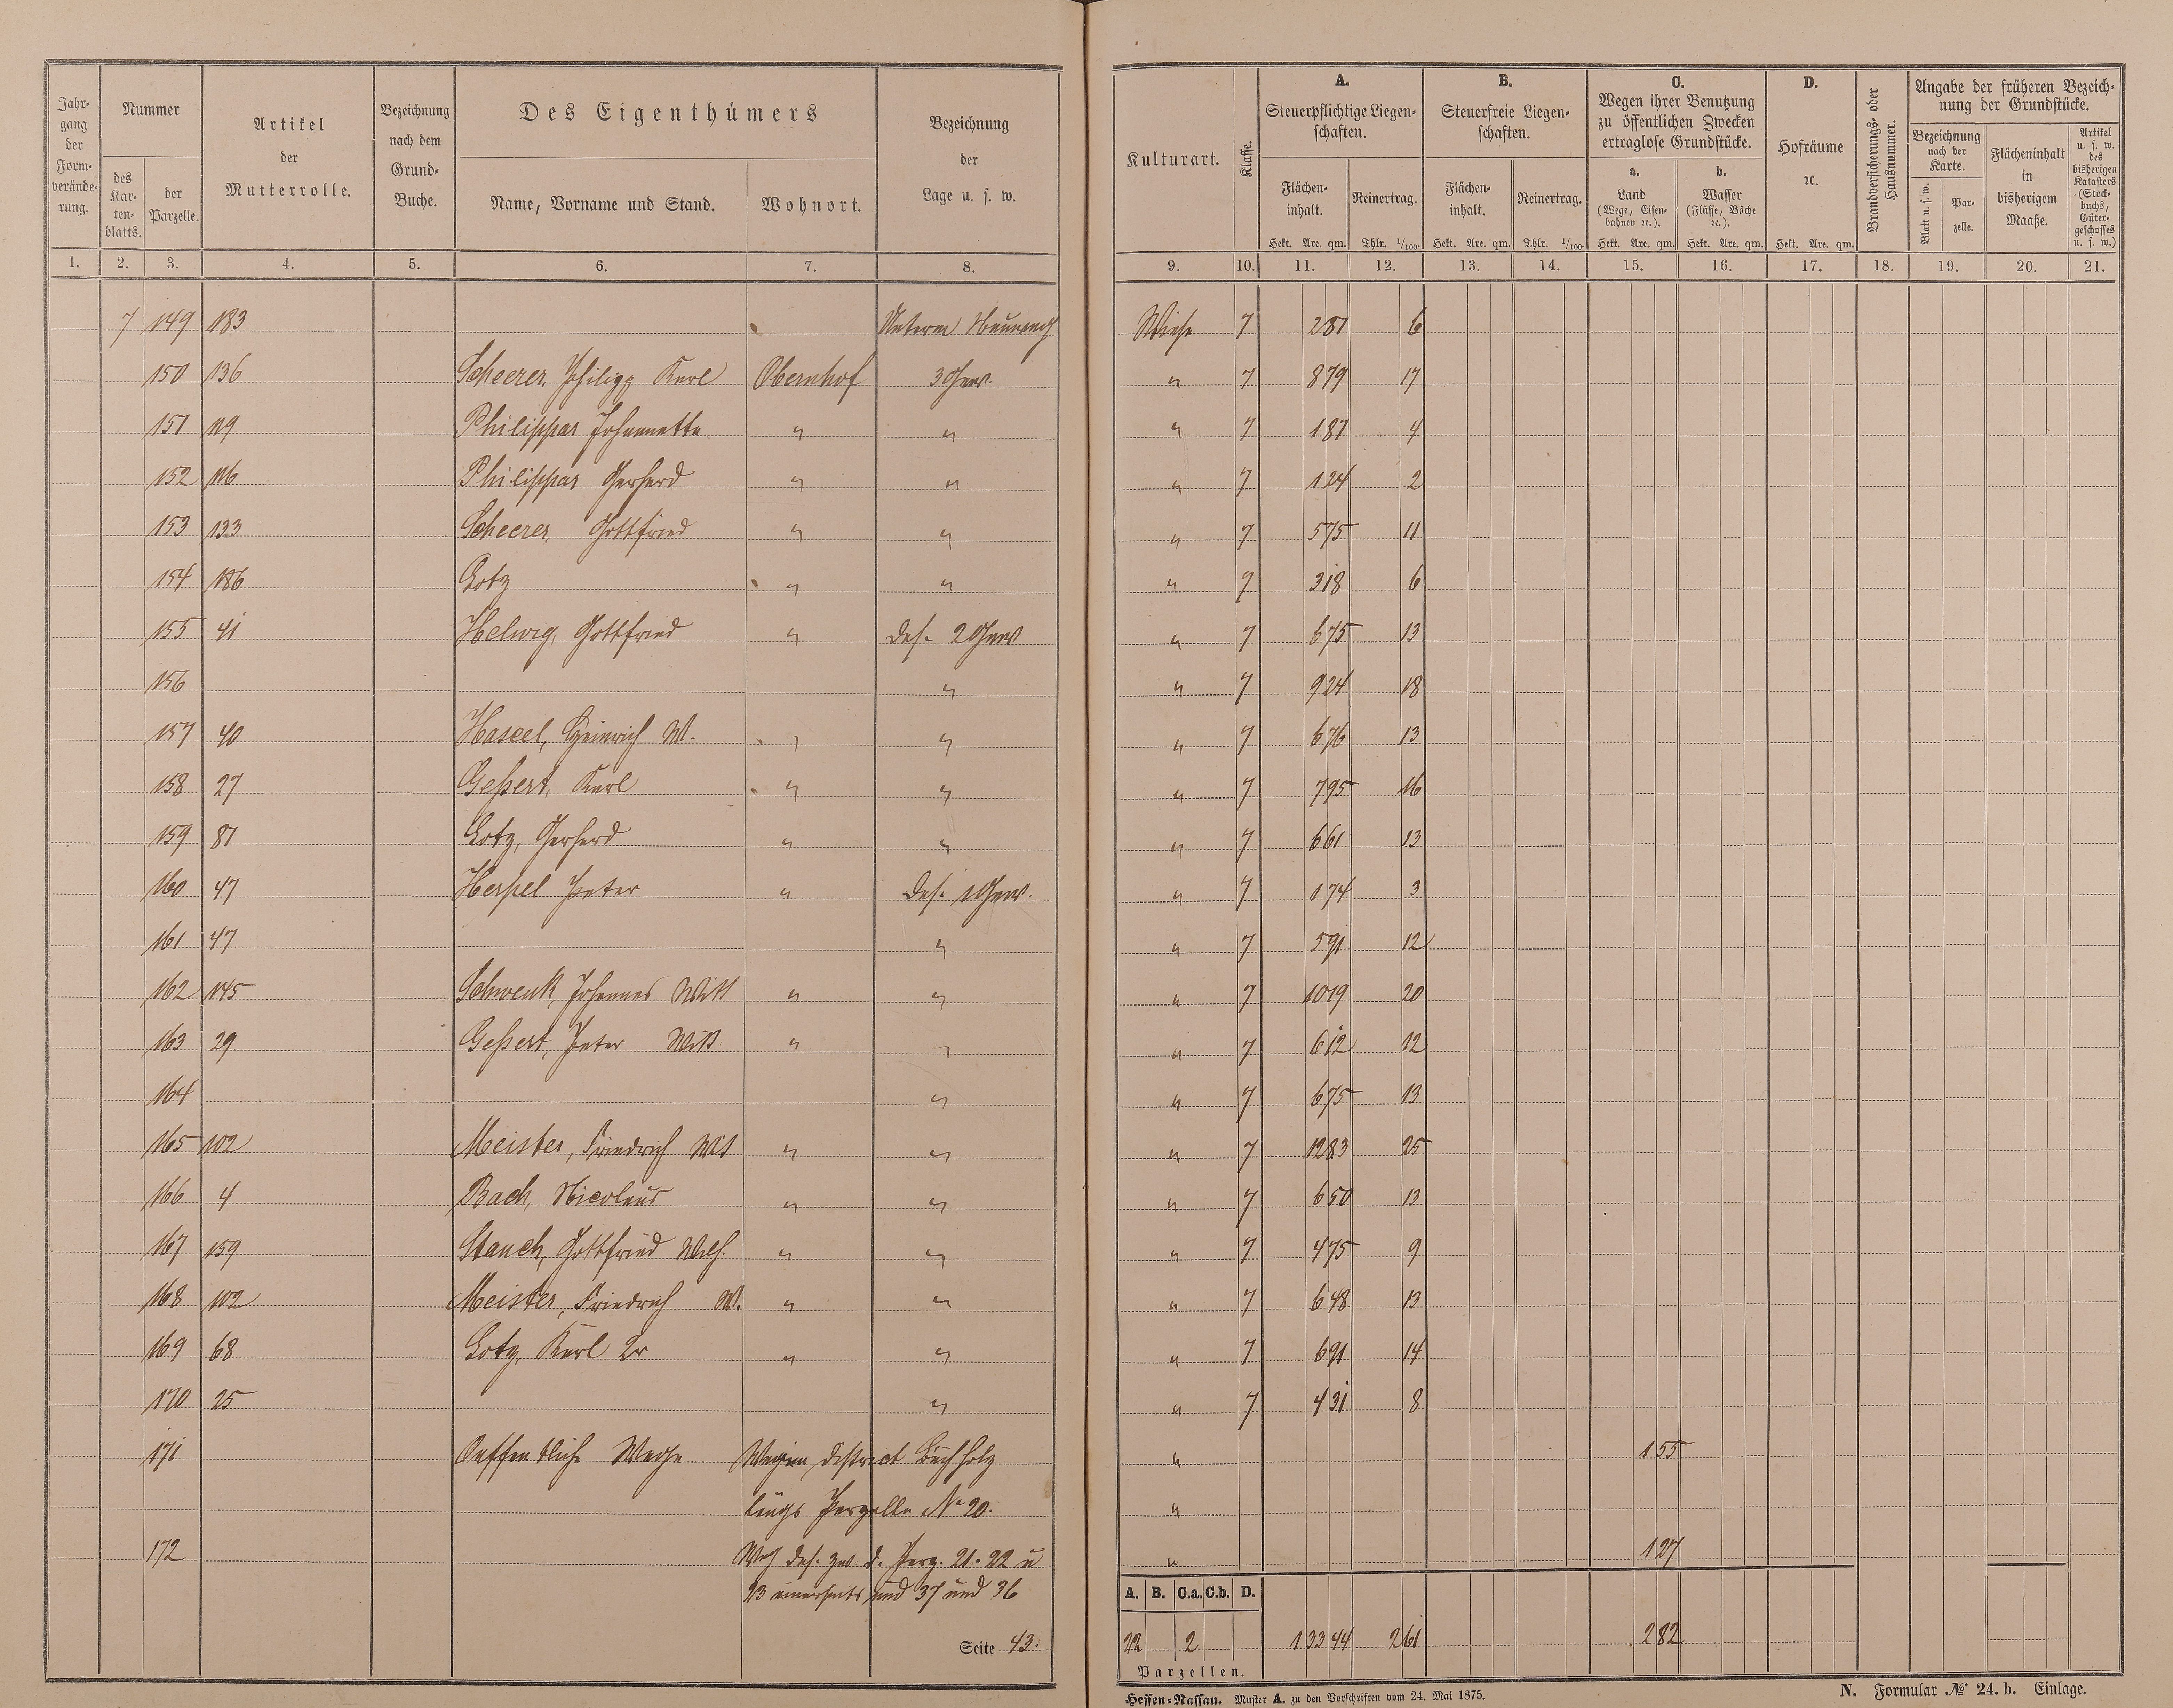 Jahr- gang der Form- verände- rung.
Nummer
des Kar- ten- blatts.
der Parzelle.
Artikel der Mutterrolle.
Bezeichnung nach dem Grund- Buche.
Des Eigenthümers
Name, Vorname und Stand.
Wohnort.
Bezeichnung der Lage u. s. w.
Kulturart.
Klasse.
A. Steuerpflichtige Liegen- schaften.
Flächen- inhalt.
Hekt. Are. qm.
Reinertrag.
Thlr. 1/100.
B. Steuerfreie Liegen- schaften.
Flächen- inhalt.
Hekt. Are. qm.
Reinertrag.
Thlr. 1/100.
C. Wegen ihrer Benutzung zu öffentlichen Zwecken ertraglose Grundstücke.
a. Land (Wege, Eisen- bahnen ꝛc.).
Hekt. Are. qm.
b. Wasser (Flüsse, Bäche ꝛc.).
Hekt. Are. qm.
D. Hofräume ꝛc.
Hekt. Are. qm.
Brandversicherungs- oder Hausnummer.
Angabe der früheren Bezeich- nung der Grundstücke.
Bezeichnung nach der Karte.
Blatt u. s. w.
Par- zelle.
Flächeninhalt in bisherigem Maaße.
Artikel u. s. w. des bisherigen Katasters (Stock- buchs, Güter- geschosses u. s. w.)
1. 2. 3. 4. 5. 6. 7. 8. 9. 10. 11. 12. 13. 14. 15. 16. 17. 18. 19. 20. 21.
7 149 183 Unterm Wiese 7 281 6
150 136 Scheerer, Philipp Karl Obernhof 3 Gew. " 7 879 17
151 119 Philippar Johannette " " " 7 187 4
152 116 Philippar Gerhard " " " 7 124 2
153 133 Scheerer, Gottfried " " " 7 575 11
154 186 Lotz " " " 7 318 6
155 41 Helwig, Gottfried " das. 2 Gew " 7 675 13
156 " " 7 924 18
157 40 Hascel, Heinrich W. " " " 7 676 13
158 27 Geßert, Karl " " " 7 795 16
159 81 Lotz, Gerhard " " " 7 661 13
160 47 Herpel Peter " das. 1 Gew. " 7 174 3
161 47 " " 7 591 12
162 145 Schwenk, Johannes Witt " " " 7 1019 20
163 29 Geßert, Peter Witt " " " 7 612 12
164 " " 7 675 13
165 102 Meister, Friedrich Wit " " " 7 1283 25
166 4 Bach, Nicolaus " " " 7 650 13
167 159 Stauch, Gottfried Wilh. " " " 7 475 9
168 102 Meister, Friedrich W. " " " 7 648 13
169 68 Lotz, Karl 2r " " " 7 691 14
170 25 " " 7 431 8
171 Oeffentliche Wege district Buchholz " 155
längs Parzelle No 20. "
172 Weg das. zw. d. Parz. 21. 22 u " 127
23 einerseits und 37 und 36
A. B. C.a. C.b. D.
Seite 43. 22 2 13344 261 282
Parzellen.
Hessen-Nassau. Muster A. zu den Vorschriften vom 24. Mai 1875.
N. Formular № 24. b. Einlage.